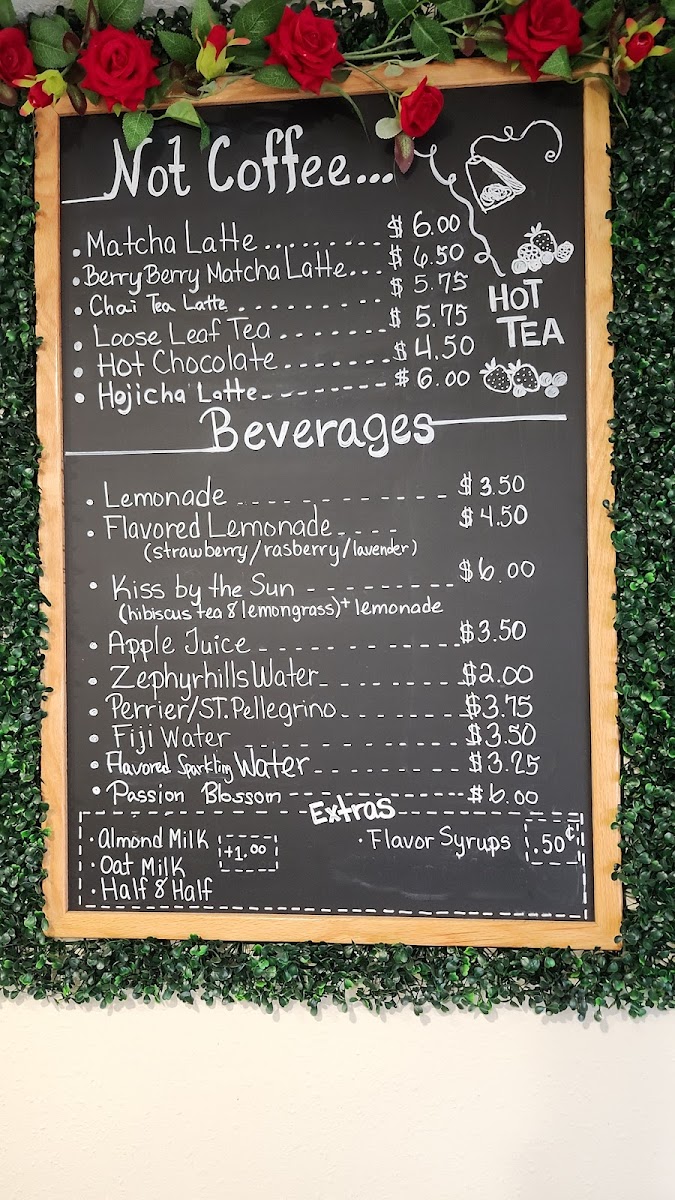 Not Coffee...
• Matcha Latte......... $ 6.00
• Berry Berry Matcha Latte... $ 6.50
• Chai Tea Latte - - - - - - - - - $ 5.75
• Loose Leaf Tea - - - - - - - $ 5.75
• Hot Chocolate - - - - - - - - $ 4.50
• Hojicha Latte - - - - - - - - - $ 6.00
HOT
TEA
Beverages
• Lemonade - - - - - - - - - - - - - - $ 3.50
• Flavored Lemonade - - - - $ 4.50
(strawberry/rasberry/lavender)
• Kiss by the Sun - - - - - - - - - - $6.00
(hibiscus tea & lemongrass)+ lemonade
• Apple Juice - - - - - - - - - - - - - $3.50
• Zephyrhills Water - - - - - - - - - $2.00
• Perrier/ST. Pellegrino - - - - - - - - $3.75
• Fiji Water - - - - - - - - - - - - - - $3.50
• Flavored Sparkling Water - - - - - - - - - $3.25
• Passion Blossom - - - - - - - - - - - - $6.00
Extras
• Almond Milk +1.00
• Oat Milk
• Half & Half
• Flavor Syrups .50¢